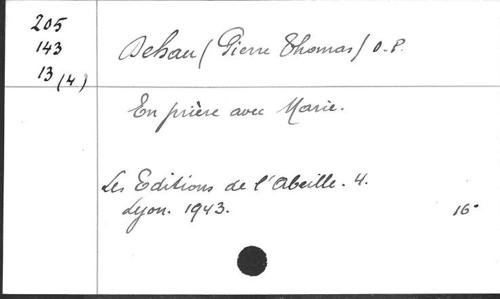 205
143
13 (4)
Dehau (Pierre Thomas) O.P.
En prière avec Marie.
Les Editions de l'Abeille. 4.
Lyon. 1943.
16°